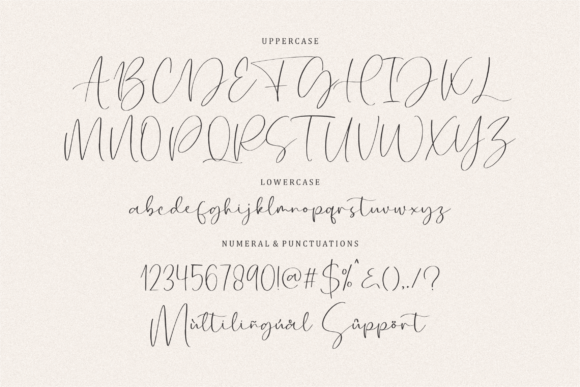 UPPERCASE
ABCDEFGHIJKL
MNOPQRSTUVWXYZ
LOWERCASE
abcdefghijklmnopqrstuvwxyz
NUMERAL & PUNCTUATIONS
1234567890!@#$%^&(),./?
Mùltilîñgúål Sûppört